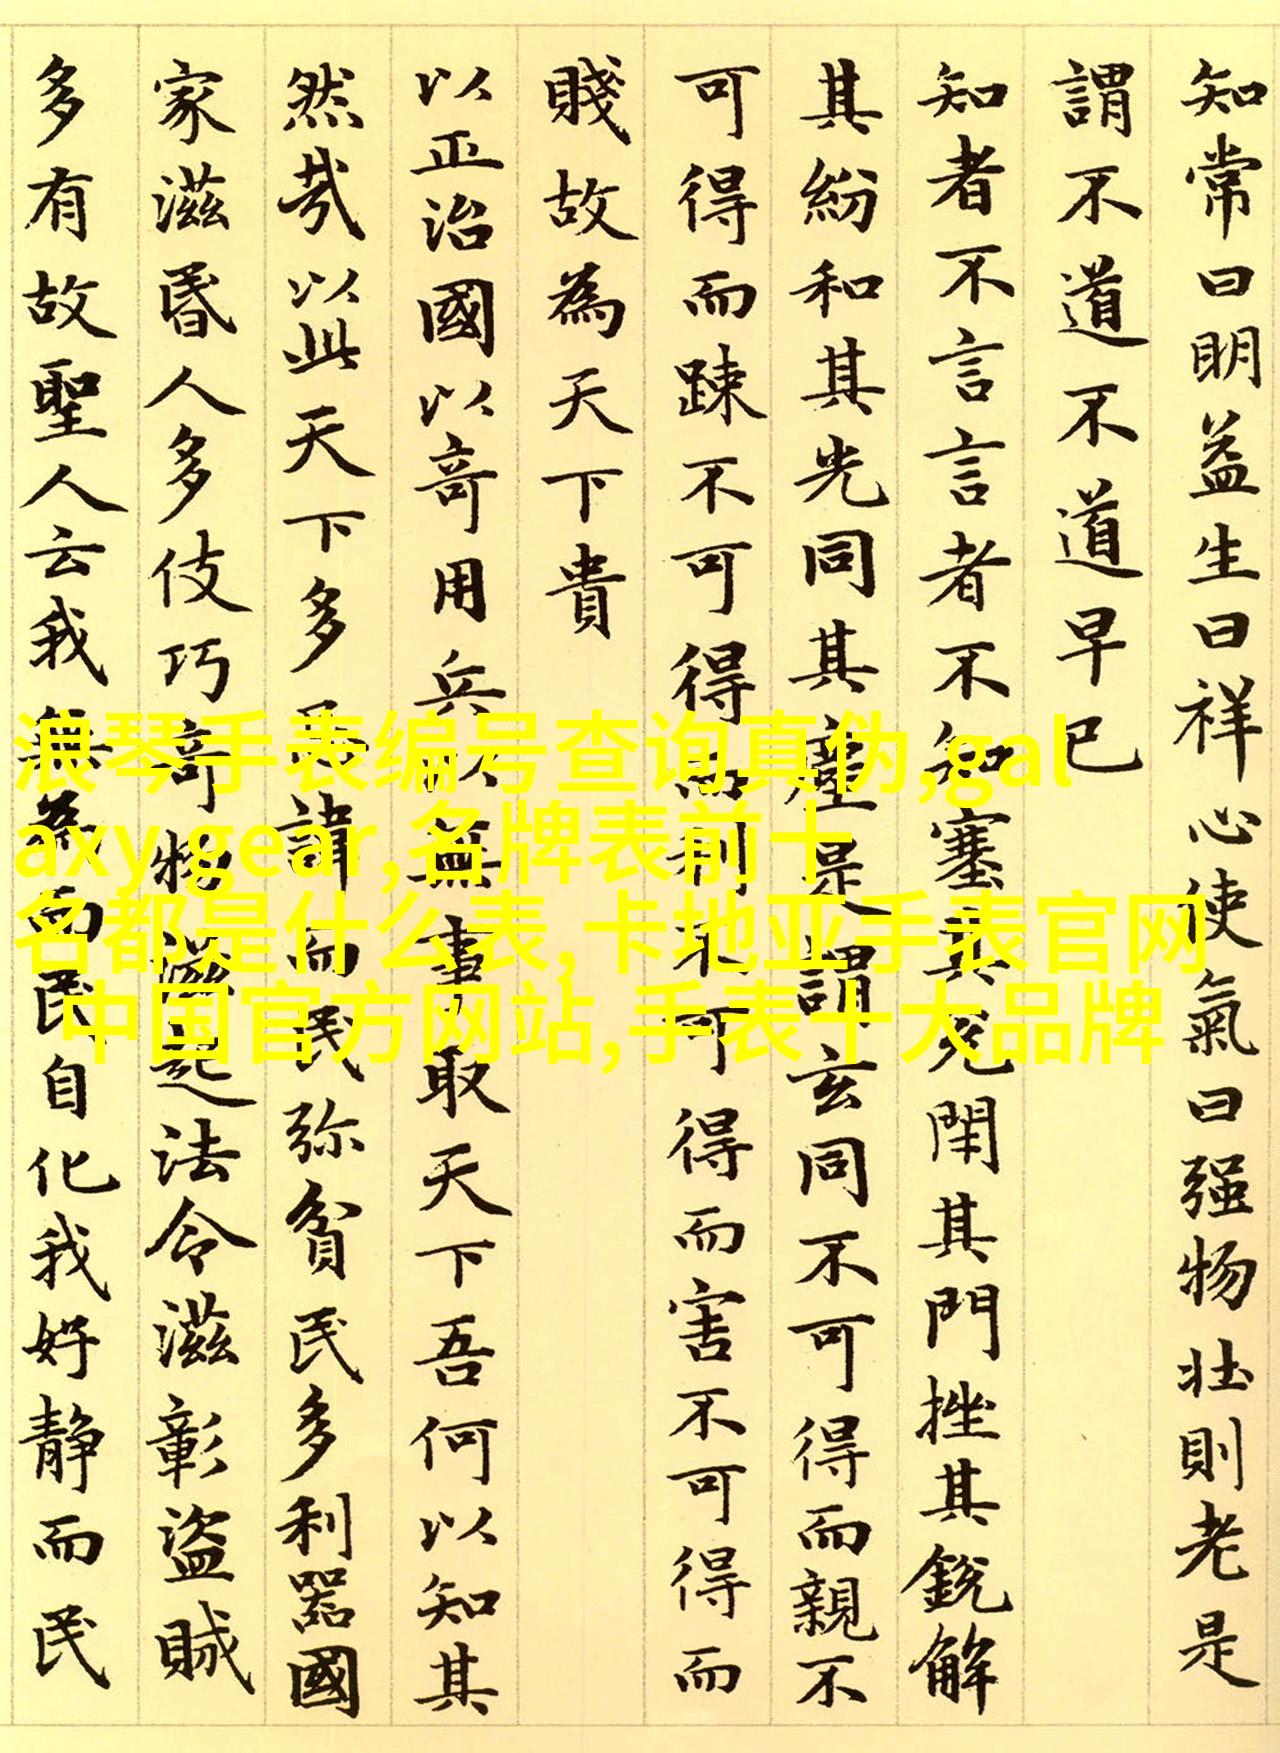 知常曰明益生曰祥心使氣曰强物壯則老是
謂不道不道早已
知者不言言者不知塞其兌閉其門挫其銳解
其紛和其光同其塵是謂玄同不可得而親不
可得而踈不可得而利不可得而害不可得而
賤故為天下貴
以正治國以竒用兵以無事取天下吾何以知其
然哉以此天下多忌諱而民弥貧民多利器國
家滋昬人多伎巧竒物滋起法令滋彰盗賊
多有故聖人云我無為而民自化我好静而民
浪琴手表编号查询真伪,gal
axy gear,名牌表前十
名都是什么表,卡地亚手表官网
中国官方网站,手表十大品牌